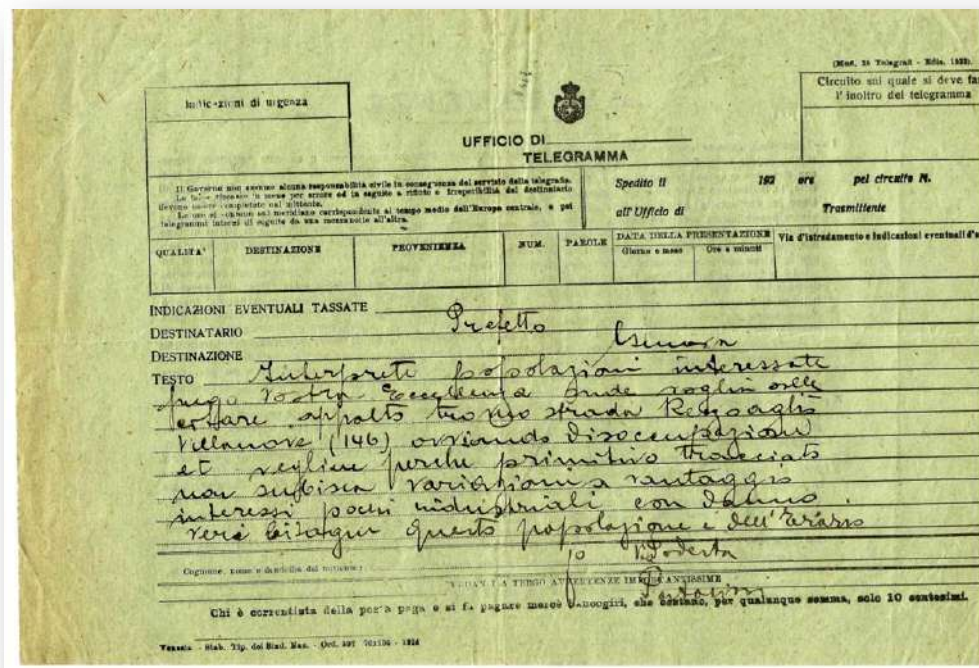 (Mod. 25 Telegrafi - Ediz. 1922).
Indicazioni di urgenza
Circuito sul quale si deve far
l'inoltro del telegramma
UFFICIO DI
TELEGRAMMA
Il Governo non assume alcuna responsabilità civile in conseguenza del servizio della telegrafia.
Le tasse riscosse in meno per errore od in seguito a rifiuto o irreperibilità del destinatario
devono essere completate dal mittente.
Le ore si contano sul meridiano corrispondente al tempo medio dell'Europa centrale, e pei
telegrammi interni di seguito da una mezzanotte all'altra.
Spedito il 192 ore pel circuito N.
all'Ufficio di Trasmittente
QUALITA' DESTINAZIONE PROVENIENZA NUM. PAROLE DATA DELLA PRESENTAZIONE Via d'istradamento e indicazioni eventuali d'u
Giorno e mese Ore e minuti
INDICAZIONI EVENTUALI TASSATE
DESTINATARIO Prefetto
DESTINAZIONE Genova
TESTO Interprete popolazioni interessate
prego Vostra Eccellenza onde voglia solle
citare appalto tronco strada Rezoaglio
Villanoce (146) ovviando disoccupazione
et vegliare perche primitivo tracciato
non subisca variazioni a vantaggio
interessi pochi industriali con danno
veri bisogni questa popolazione e dell'Erario
fo Podestà
Cognome, nome e domicilio del mittente:
VEDANSI A TERGO AVVERTENZE IMPORTANTISSIME
Chi è correntista della posta paga e si fa pagare mercè bancogiri, che costano, per qualunque somma, solo 10 centesimi.
Venezia - Stab. Tip. del Sind. Man. - Ord.